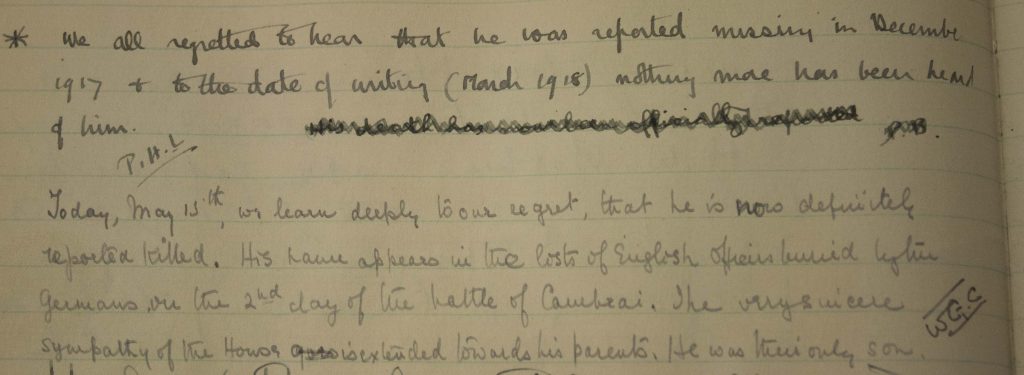 * We all regretted to hear that he was reported missing in December
1917 & to the date of writing (March 1918) nothing more has been heard
of him. His death has now been officially reported P.B.
P.H.L
Today, May 15th, we learn deeply to our regret, that he is now definitely
reported killed. His name appears in the lists of English officers buried by the
Germans, on the 2nd day of the battle of Cambrai. The very sincere
W.G.C
sympathy of the House is extended towards his parents. He was their only son.